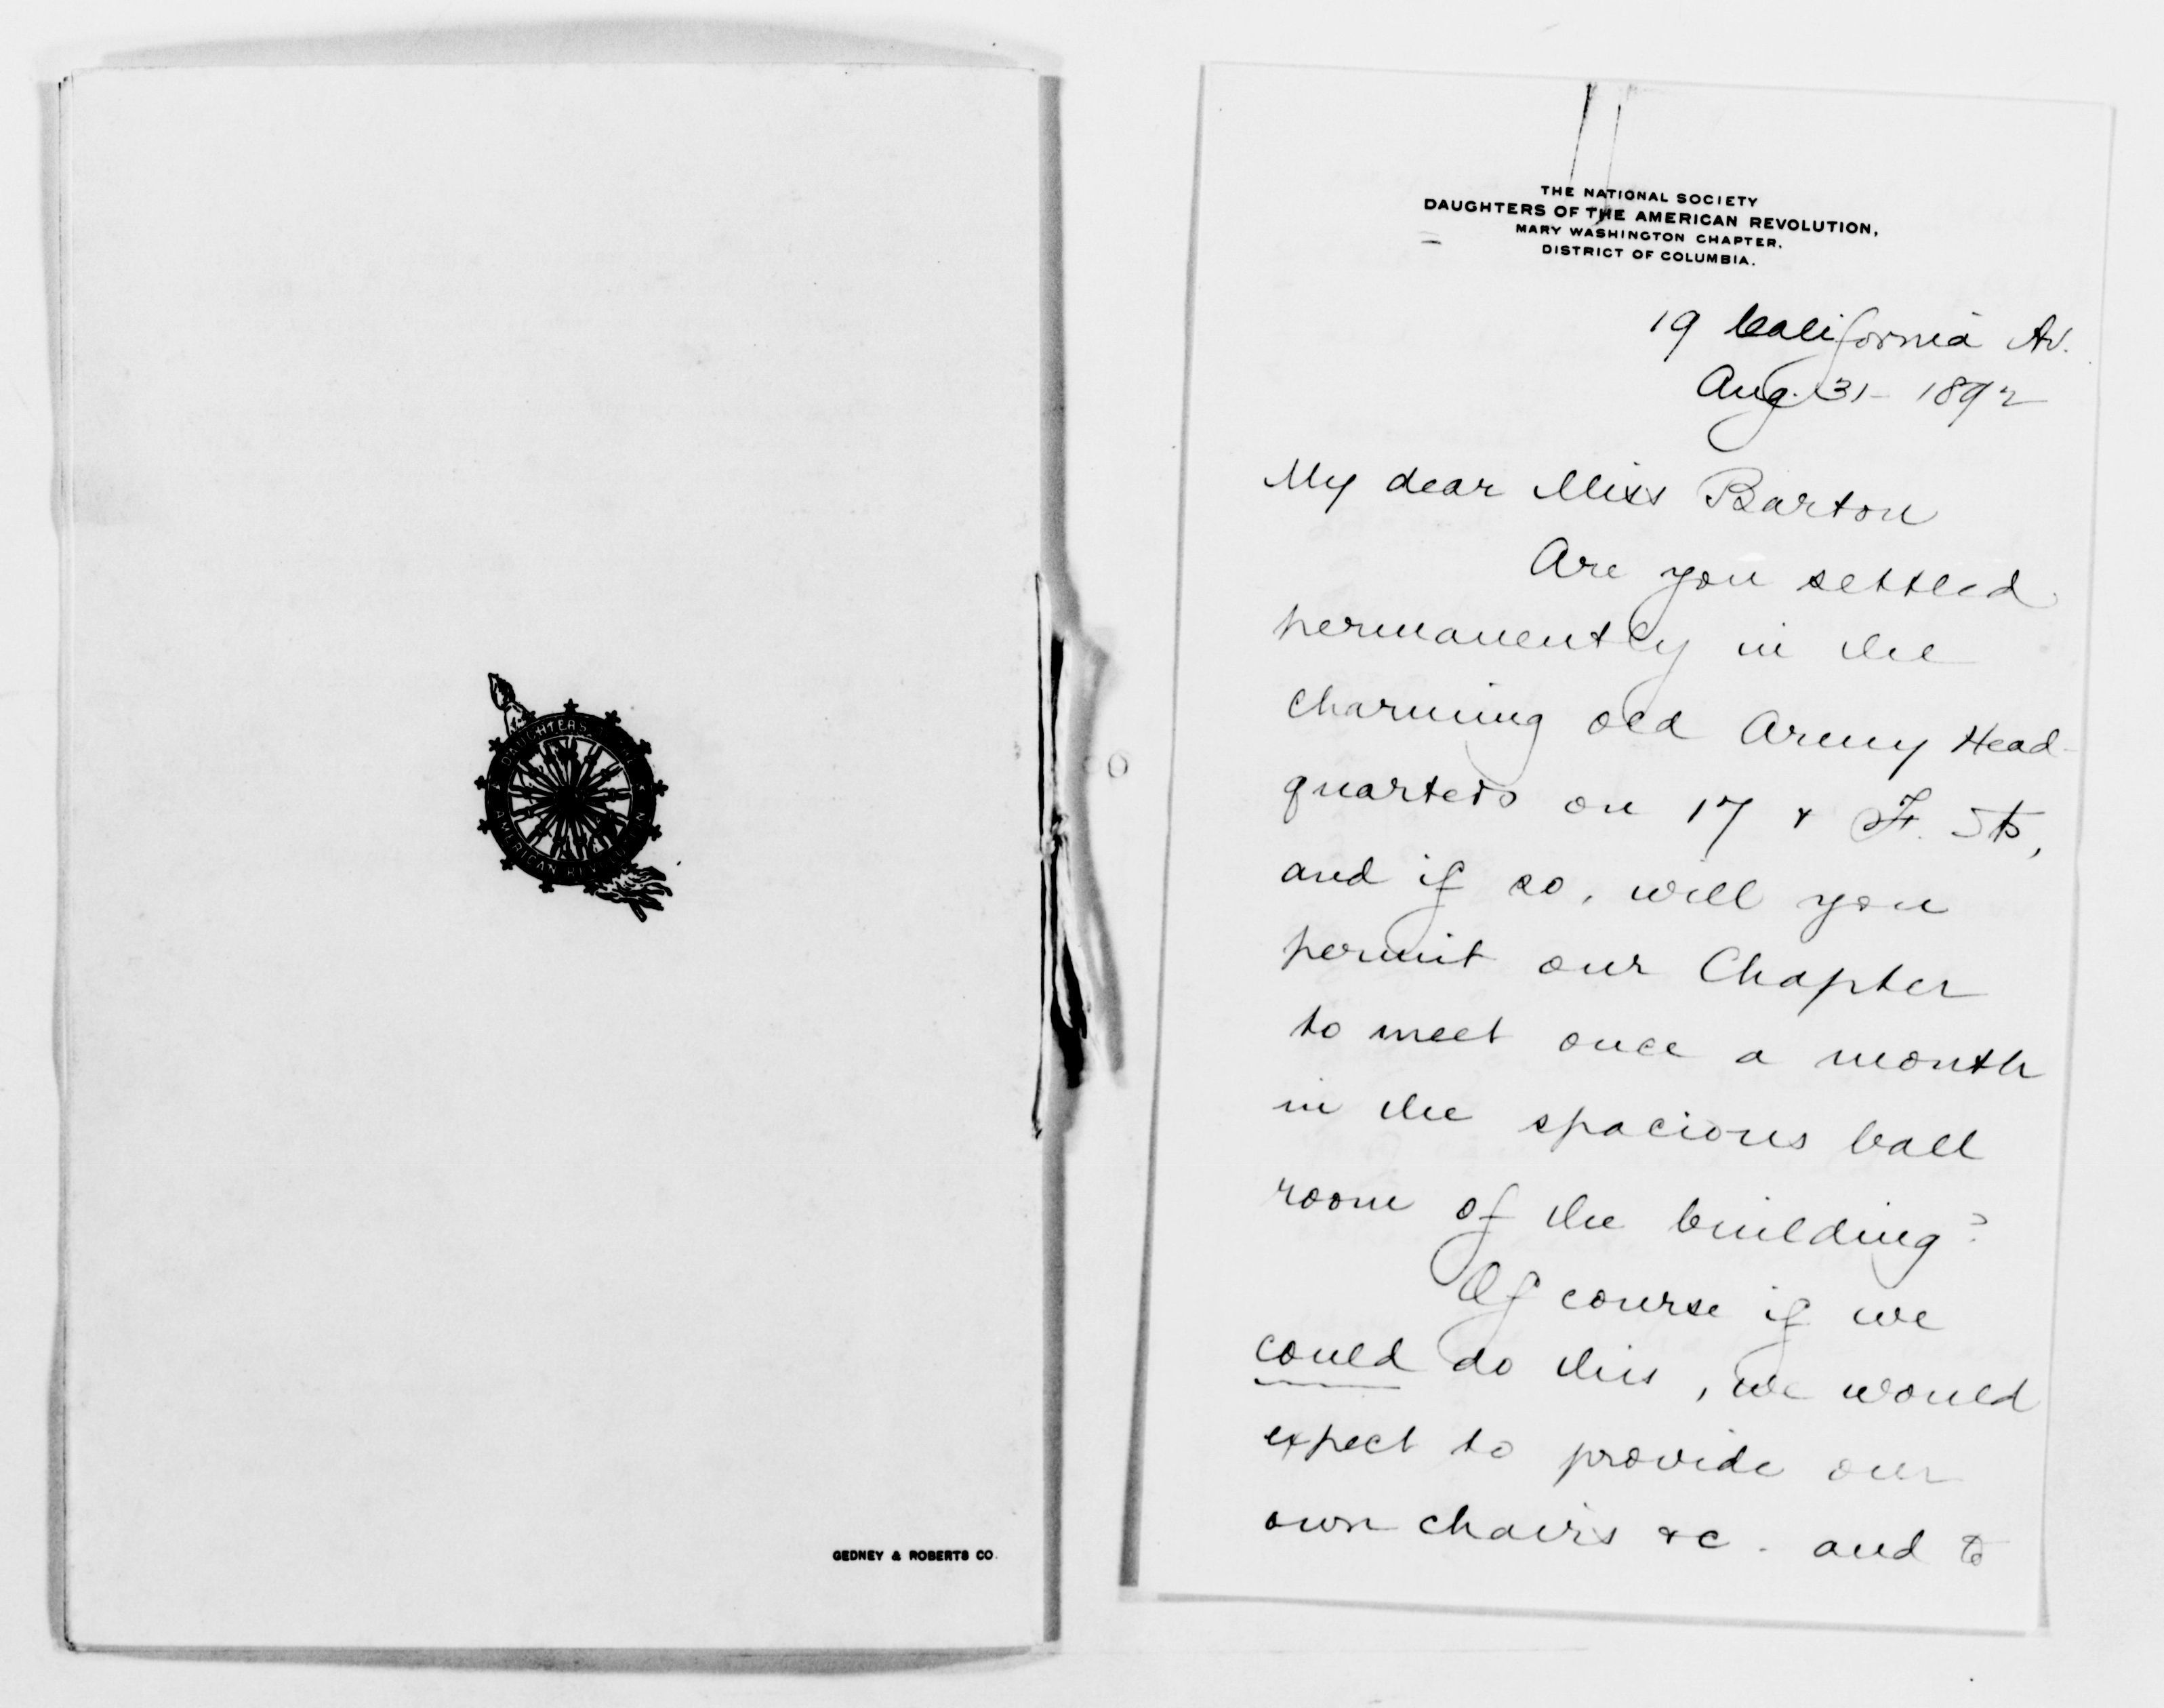 DAUGHTERS
AMERICAN
GEDNEY & ROBERTS CO.
THE NATIONAL SOCIETY
DAUGHTERS OF THE AMERICAN REVOLUTION,
MARY WASHINGTON CHAPTER,
DISTRICT OF COLUMBIA.
19 California Av.
Aug. 31 - 1892
My dear Miss Barton
Are you settled
permanently in the
charming old Army Head-
quarters on 17 & F. Sts,
and if so, will you
permit our Chapter
to meet once a month
in the spacious ball
room of the building?
Of course if we
could do this, we would
expect to provide our
own chairs &c. and to